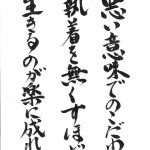 悪い意味でのこだわ
執着を無くすほ
生きるのが楽に成れ